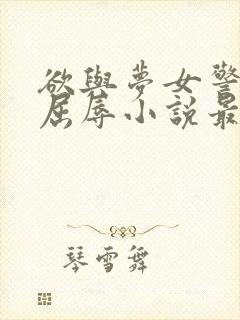 欲與夢女警
屈辱小說最
琴雪舞